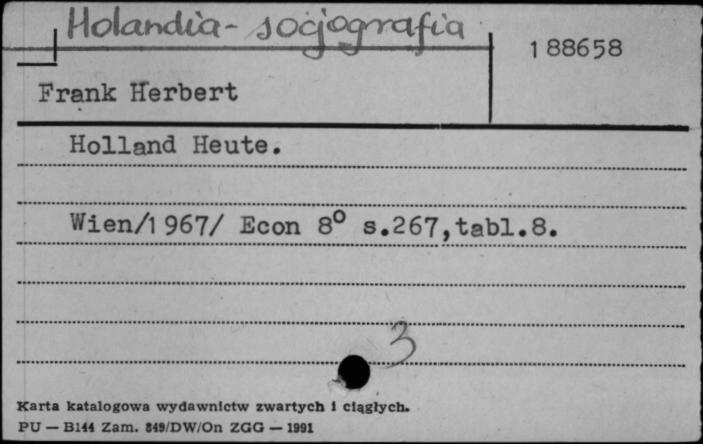 Holandia - socjografia
188658
Frank Herbert
Holland Heute.
Wien/1967/ Econ 8° s.267,tabl.8.
3
Karta katalogowa wydawnictw zwartych i ciągłych.
PU — B144 Zam. 849/DW/On ZGG — 1991